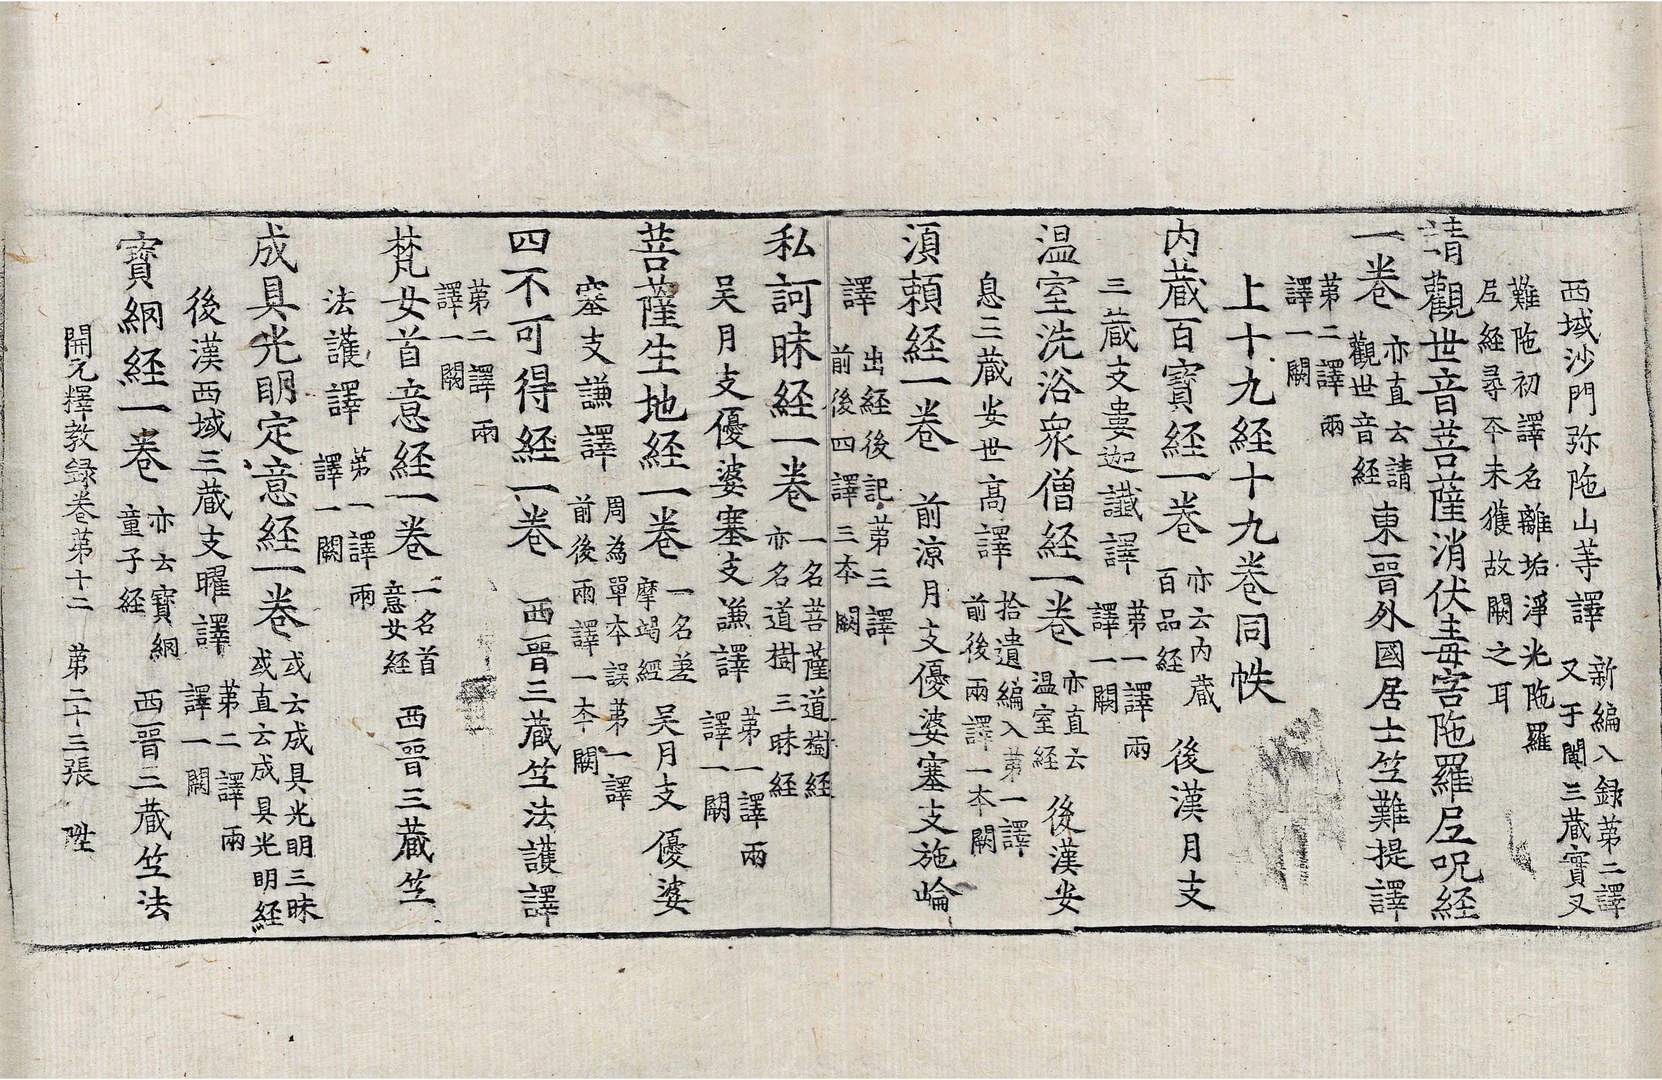 西域沙門弥陁山等譯 新編入録第二譯
又于闐三藏實叉
難陁初譯名離垢淨光陁羅
𡰱経尋夲未獲故闕之耳
請觀世音菩薩消伏毒害陁羅𡰱呪経
一卷 亦直云請
觀世音経 東晉外國居士竺難提譯
苐二譯兩
譯一闕
上十九経十九卷同帙
内蔵百寶経一卷 亦云内蔵
百品経 後漢月支
三蔵支婁迦讖譯 苐一譯兩
譯一闕
温室洗浴衆僧経一卷 亦直云
温室経 後漢安
息三蔵安世高譯 拾遺編入苐一譯
前後兩譯一夲闕
湏頼経一卷 前涼月支優婆塞支施崘
譯 出経後記苐三譯
前後四譯三夲闕
私訶昧経一卷 一名菩薩道樹経
亦名道樹三昧経
吴月支優婆塞支謙譯 苐一譯兩
譯一闕
菩薩生地経一卷 一名差
摩竭経 吴月支優婆
塞支謙譯 周為單夲誤苐一譯
前後兩譯一夲闕
四不可得経一卷 西晉三蔵竺法護譯
苐二譯兩
譯一闕
梵女首意経一卷 一名首
意女経 西晉三蔵竺
法護譯 苐一譯兩
譯一闕
成具光明定意経一卷 或云成具光明三昧
或直云成具光明経
後漢西域三蔵支曜譯 苐二譯兩
譯一闕
寳網経一卷 亦云寳網
童子経 西晉三蔵竺法
開元釋教録卷苐十二 苐二十三張 陞